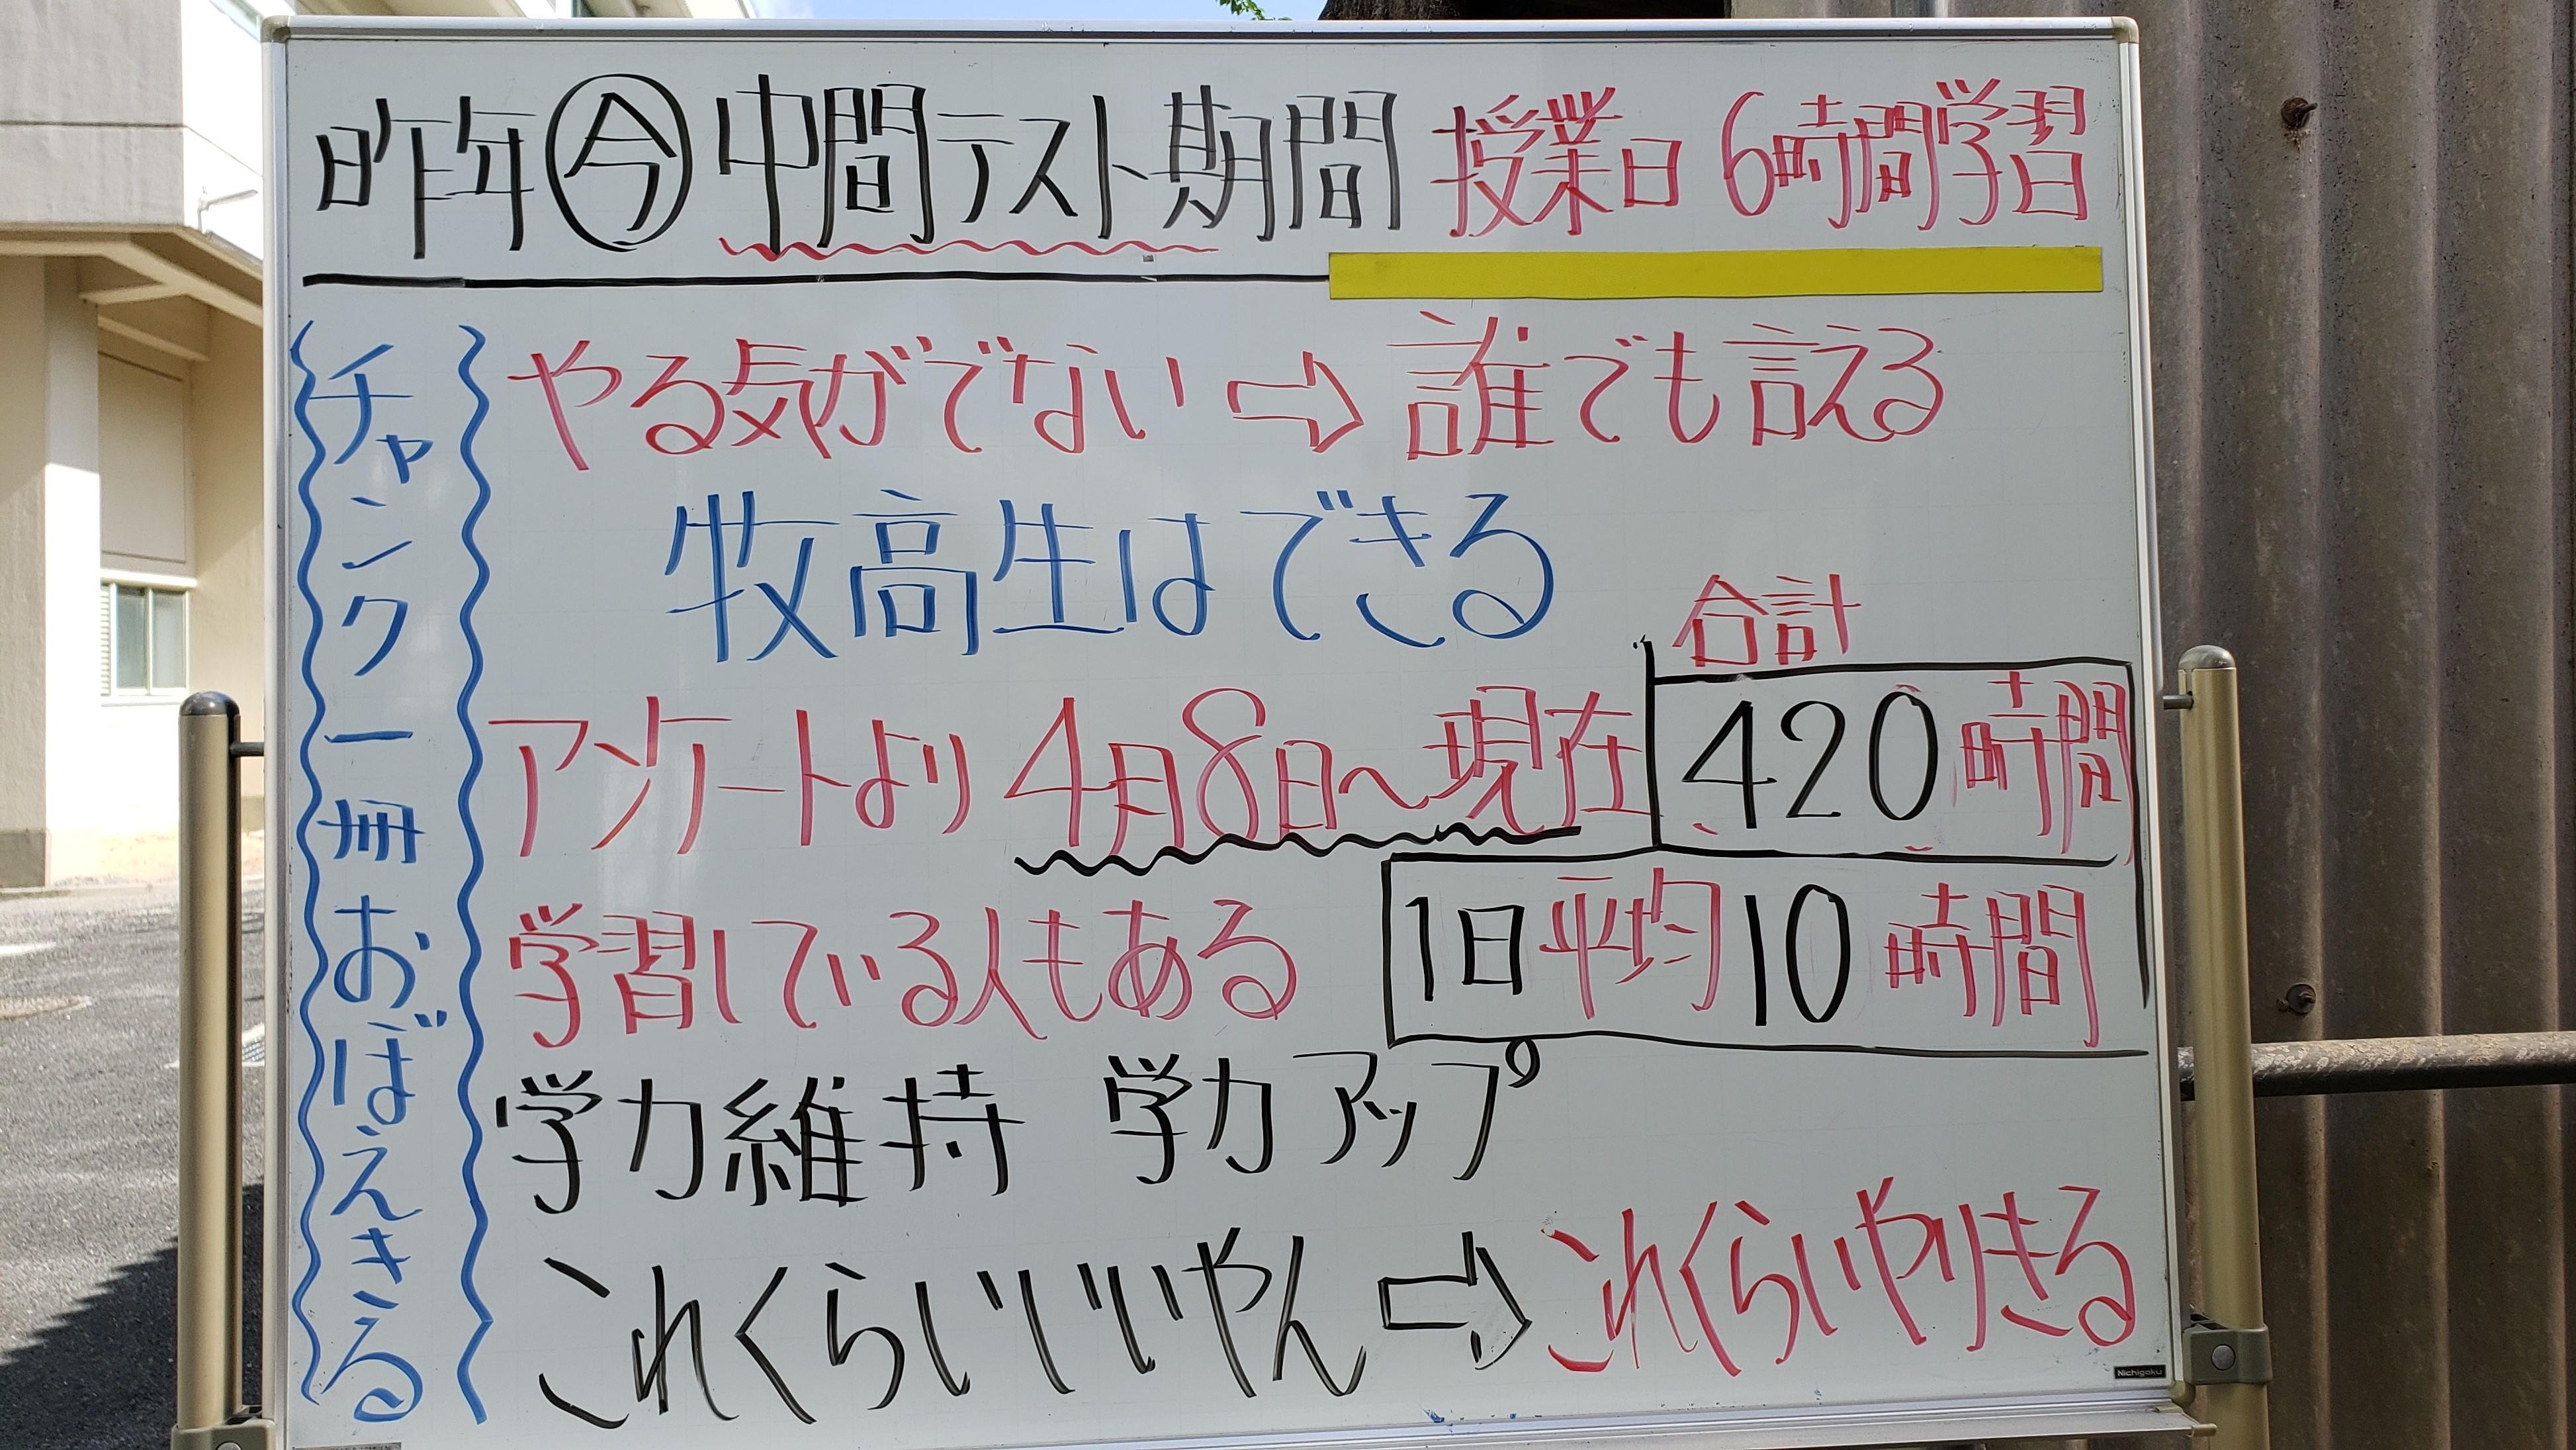 昨年 今 中間テスト期間 授業日 6時間学習
チャンク一冊おぼえきる
やる気がでない ⇨ 誰でも言える
牧高生はできる
合計
アンケートより 4月8日~現在 420時間
学習している人もある 1日平均10時間
学力維持 学力アップ
これくらいいいやん ⇨ これくらいやりきる
Nichigaku